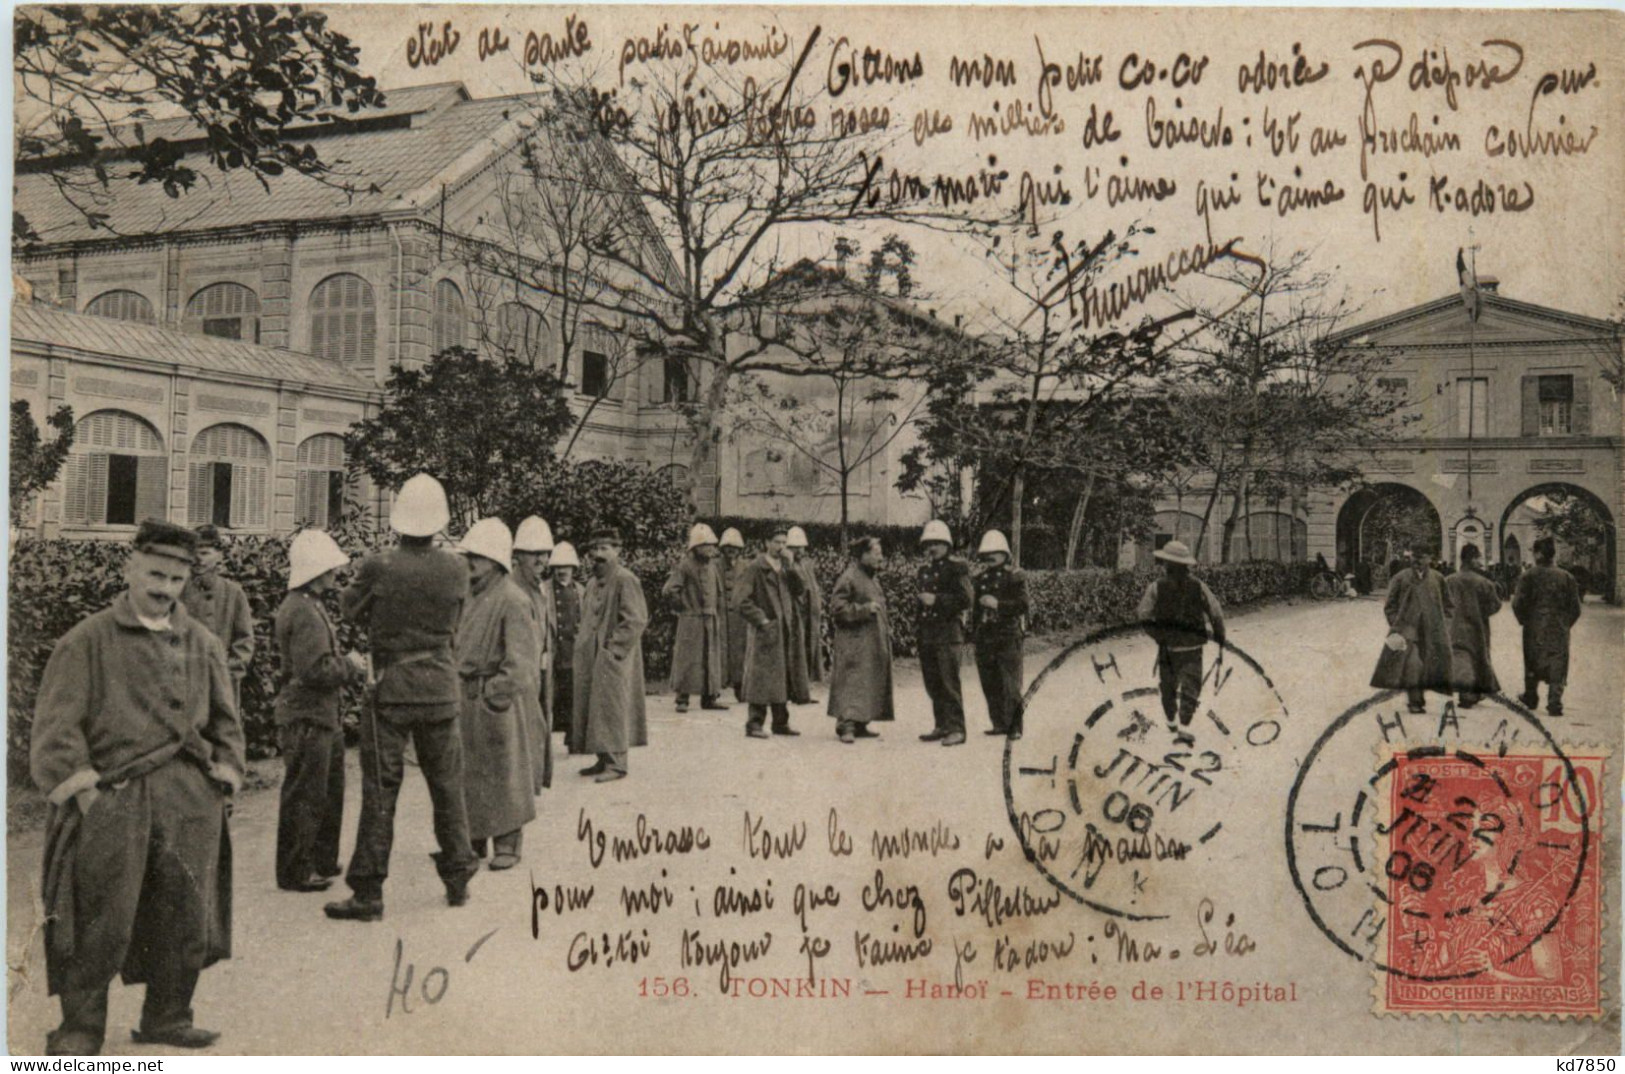 état de santé satisfaisante
Allons mon petit co-co adoré je dépose sur
tes lèvres roses des milliers de baisers : Et au prochain courrier
ton mari qui t'aime qui t'aime qui t'adore
Embrasse tout le monde a la maison
pour moi ; ainsi que chez
toi toujour je t'aime je t'adore : Ma-Léa
156. TONKIN — Hanoï - Entrée de l'Hôpital
40
HANOI
22
JUIN
06
TONKIN
HANOI
22
JUIN
06
TONKIN
POSTES
10
INDOCHINE FRANÇAISE
kd7850